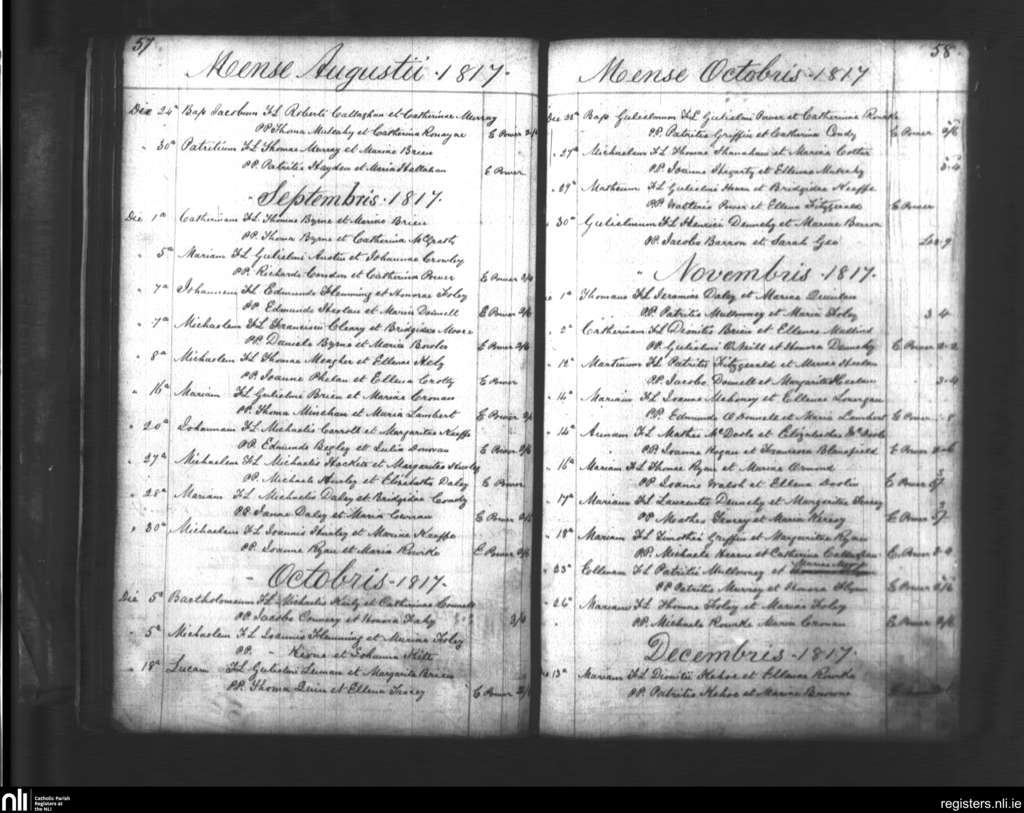 57
Mense Augustii - 1817 -
Die 24ª Bap Jacobum FL Roberti Callaghan et Catherinae Murray
PP Thoma Mulcahy et Catherina Ronayne E Power 2/6
" 30ª Patritium FL Thomae Murray et Mariae Brien
PP. Patritis Hayden et Maria Hallahan E Power
- Septembris - 1817 -
Die 1ª Catherinam FL Thomae Byrne et Mariae Brien
PP. Thoma Byrne et Catherina McGrath
" 5ª Mariam FL Gulielmi Austin et Johannae Crowley
PP. Richardo Condon et Catherina Power E Power
" 7ª Johannem FL Edmundi Flemming et Honorae Foley
PP Edmundo Phelan et Maria Donnell E Power 2/6
" 7ª Michaelem FL Francisci Cleary et Bridgidae Moore
PP. Daniele Byrne et Maria Bowler E Power 2/6
" 8ª Michaelem FL Thomae Meagher et Ellenae Hely
PP. Joanne Phelan et Ellena Crotty E Power
" 16ª Mariam FL Gulielmi Brien et Mariae Cronan
PP. Thoma Minehan et Maria Lambert E Power
" 20ª Johannam FL Michaelis Carroll et Margaritae Keeffe
PP. Edmundo Begley et Julia Donovan E Power 2/6
" 27ª Michaelem FL Michaelis Hackett et Margaritae Hurley
PP. Michaele Hurley et Elizabetha Daley E Power
" 28ª Mariam FL Michaelis Daley et Bridgidae Condy
PP Daley et Maria Curran E Power
" 30ª Michaelem FL Joannis Hurley et Mariae Keeffe
PP. Joanne Ryan et Maria Rourke E Power 2/6
- Octobris - 1817 -
Die 5ª Bartholomeum FL Michaelis Kiely et Catherinae Connell
PP. Jacobo Comery et Honora Fahy 3/4
" 5ª Michaelem FL Joannis Flemming et Mariae Foley
PP. - et Johanna
" 18ª Lucam FL Gulielmi Leman et Margarita Brien
PP. Thoma Quin et Ellena E Power
58
Mense Octobris - 1817
Die 25ª Bap Gulielmum FL Gulielmi Power et Catherinae Rourke
PP. Patritis Griffin et Catherina Condy E Power 2/6
" 27ª Michaelem FL Thomae Shanahan et Maria Cotter
PP. Joanne Hegarty et Ellena Mulcahy 3-4
" 29ª Matheum FL Gulielmi Hearn et Bridgidae Keeffe
PP Walterio Power et Ellena Fitzgerald E Power
" 30ª Gulielmum FL Henrici Dennehy et Mariae Barron
PP. Jacobo Barron et Sarah Gee
" Novembris - 1817 -
1ª Thomam FL Jeremiae Daley et Mariae Quinlan
PP. Patritis Mullowney et Maria Foley 3 4
" 2ª Catherinam FL Dionitii Brien et Ellenae
PP. Gulielmi O'Neill et Honora Dennehy E Power 2-2
" 12ª Martinum FL Patritis Fitzgerald et Mariae
PP. Jacobo Donnell et Margarita 3-4
" 14ª Mariam FL Joannis Mahoney et Ellenae Lonergan
PP. Edmundo O Donnell et Maria Lambert E Power
" 14ª Annam FL Mathei McDoole et Elizabethae McDoole
PP. Joanne Hogan et Francisca E Power
" 16ª Mariam FL Thomae Ryan et Mariae Ormond
PP Joanne Walsh et Ellena Doolin E Power
" 17ª Mariam FL Laurentii Dennehy et Margaritae
PP Matheo et Maria E Power
" 18ª Mariam FL Timothei Griffin et Margaritae Ryan
PP. Michaele Hearne et Catherina Callaghan E Power
Mariae
" 23ª Ellenam FL Patritii Mullowney et
PP Patritis Murrey et Honora Flynn E Power
" 26ª Mariam FL Thomae Foley et Mariae Foley
PP. Michaele Rourke Maria Cronan E Power 2/6
Decembris - 1817 -
13ª Mariam FL Dionitii Kehoe et Ellenae Rourke
PP. Patritis Kehoe et Mariae Browne
nli Catholic Parish
Registers at
the NLI
registers.nli.ie